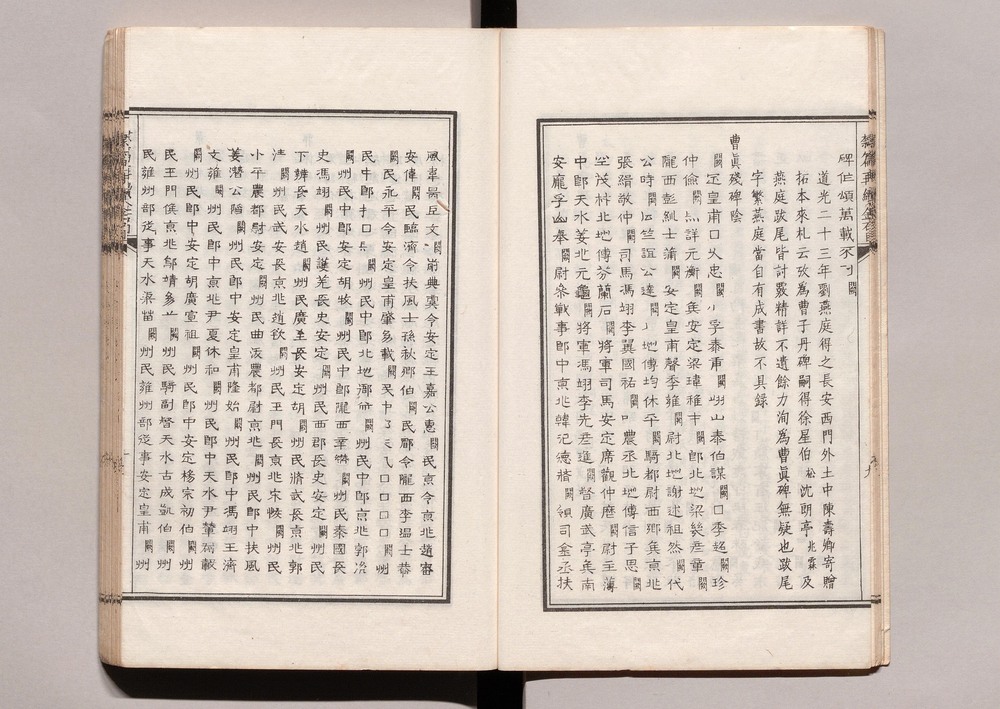 碑作頌萬載不刊闕
道光二十三年劉燕庭得之長安西門外土中陳壽卿寄贈
拓本來札云攷為曹子丹碑嗣得徐星伯松沈朗亭兆霖及
燕庭跋尾皆討覈精詳不遺餘力洵為曹真碑無疑也跋尾
字繁燕庭當自有成書故不具錄
曹真殘碑陰
闕定皇甫口乂忠闕孚泰甫闕岰山泰伯謀闕口季超闕珍
仲儉闕詳元衡闕兵安定梁瑋稚市闕郎北地梁幾彥章闕
隴西彭紃士蒲闕安定皇甫聲季雍闕尉北地謝述祖然闕代
公時闕竺誼公達闕地傅均休平闕騎都尉西鄉侯京兆
張縉敬仲闕司馬馮翊李翼國祐闕農丞北地傅信子思闕
茂林北地傅芬蘭石闕將軍司馬安定席觀仲歷闕尉主薄
中郎天水姜兆元龜闕將軍馮翊李先彥進闕督廣武亭侯南
安龐孚山奉闕尉參戰事郎中京兆韓氾德脩闕領司金丞扶
風韋昺巨文闕崩典虞令安定王嘉公惠闕民京令京兆趙審
安偉闕民臨濟令扶風士孫秋鄉伯闕民鄜令隴西李溫士恭
闕民永平令安定皇甫肇多載闕民口口口口口闕州
民中郎口闕州民中郎北地闕州民中郎京兆郭
闕州民中郎安定胡牧闕州民中郎隴西辛闕州民秦國長
史馮翊闕州民護羌長史安定闕州民西郡長史安定闕州民
下辨長天水趙闕州民廣至長安定胡闕州民將武長京兆郭
清闕州民武安長京兆趙欽闕州民王門長京兆宋恢闕州民
小平農都尉安定闕州民曲淩農都尉京兆闕州民郎中扶風
姜潛公隱闕州民郎中安定皇甫隆始闕州民郎中馮翊王濟
文雍闕州民郎中京兆尹夏休和闕州民郎中天水尹輦碣載
闕州民郎中安定胡廣宣祖闕州民郎中安定楊宗初伯闕州
民王門侯京兆鄔靖多闕州民騎副督天水古成凱伯闕州
民雍州部從事天水梁闕州民雍州部從事安定皇甫闕州